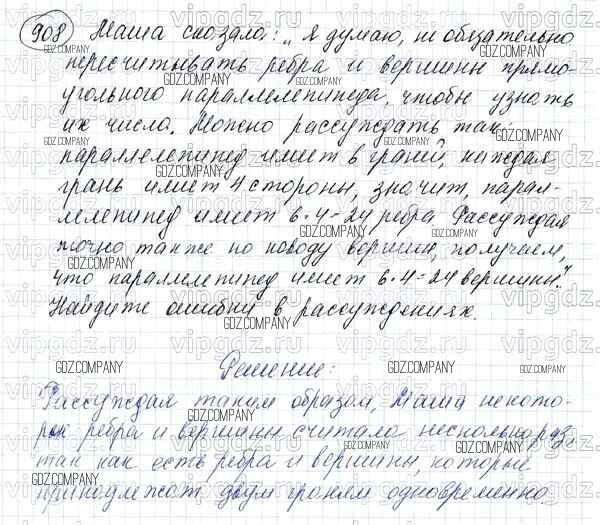 908 Маша сказала: „Я думаю, не обязательно
пересчитывать ребра и вершины прямо-
угольного параллелепипеда, чтобы узнать
их число. Можно рассуждать так:
параллелепипед имеет 6 граней, каждая
грань имеет 4 стороны, значит, парал-
лелепипед имеет 6·4=24 ребра. Рассуждая
точно также по поводу вершин, получаем,
что параллелепипед имеет 6·4=24 вершины".
Найдите ошибку в рассуждениях.
Решение:
Рассуждая таким образом, Маша некото-
рые ребра и вершины считала несколько раз,
так как есть ребра и вершины, которые
принадлежат двум граням одновременно.
GDZ.COMPANY
vipgdz.com